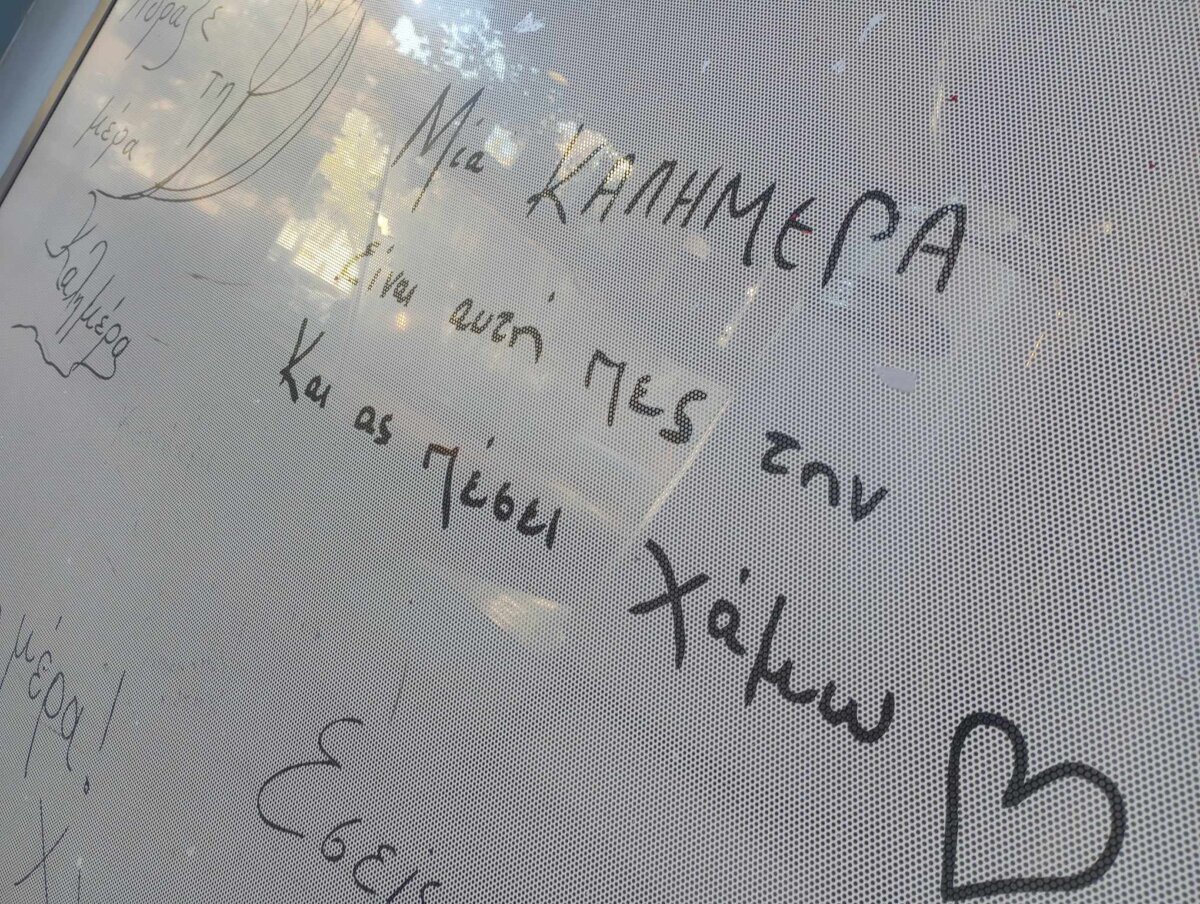 τη
μέρα
Καλημέρα
Μία ΚΑΛΗΜΕΡΑ
είναι αυτή πες την
Και ας πέσει χάμω
μέρα!
Εσείς